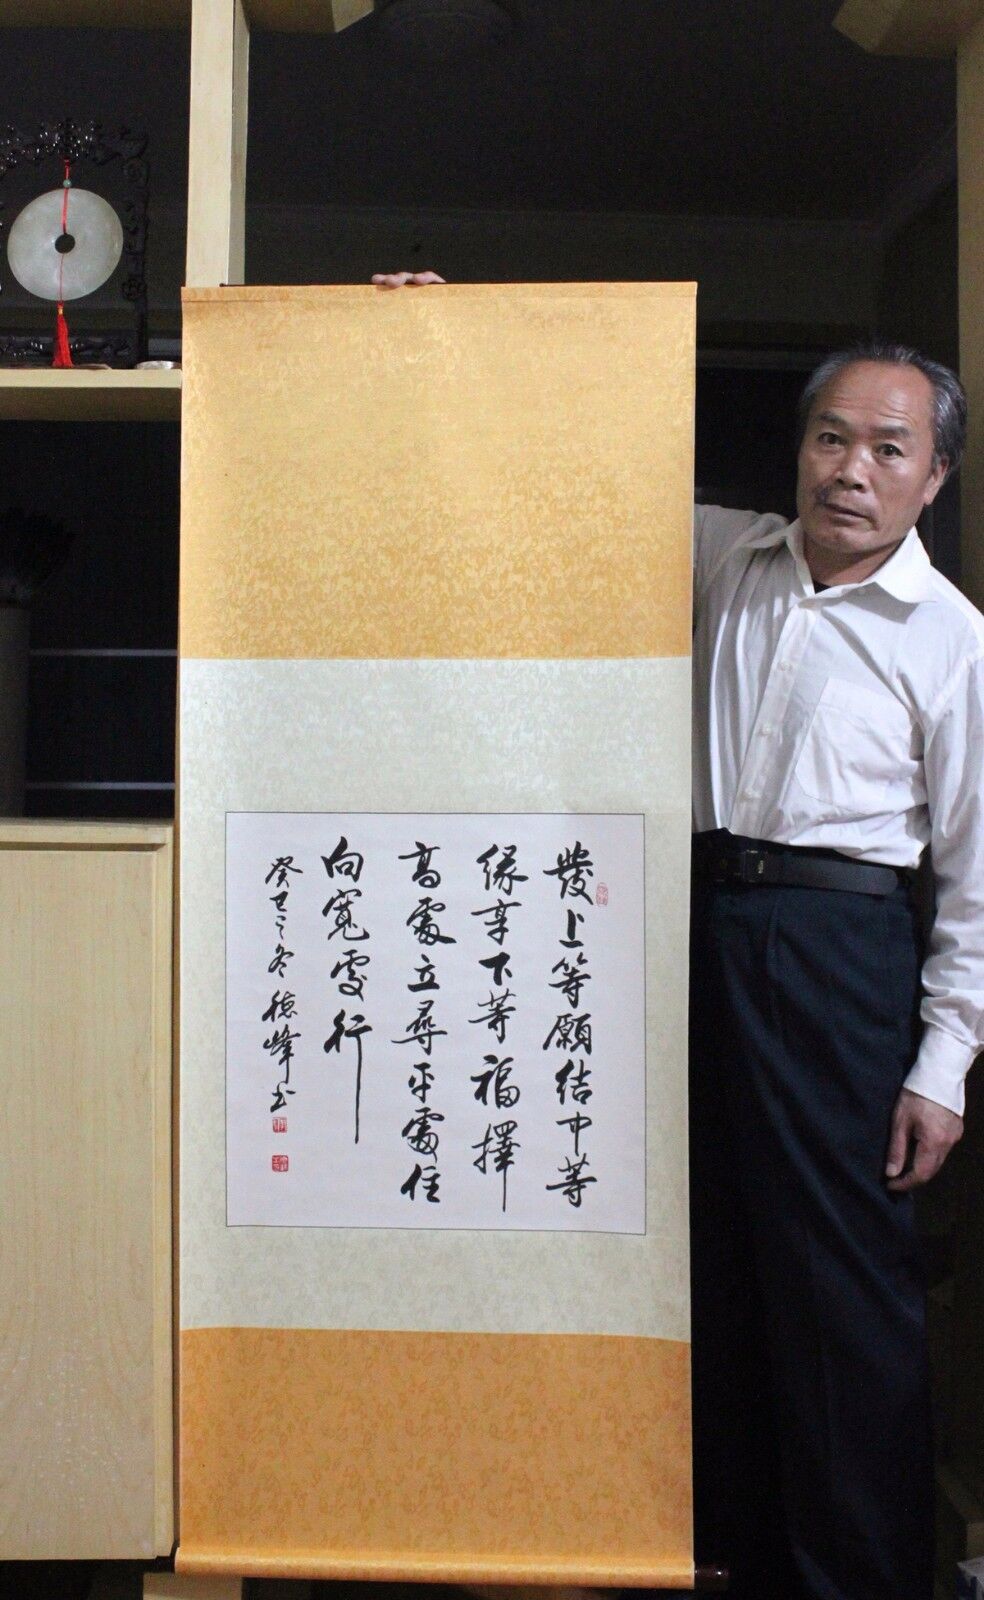 發上等願結中等
緣享下等福擇
高處立尋平處住
向寬處行
癸巳之冬德峰书